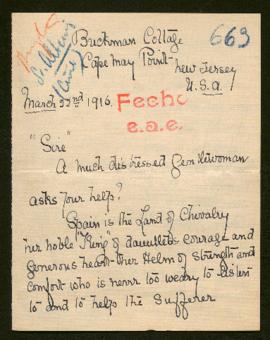 Buckman Cottage
663
Cape May Point
New Jersey
U.S.a.
March 22nd 1916.
Fecho
e.a.e.
"Sire"
A much distressed Gentlewoman
asks your help?
Spain is the Land of Chivalry
her noble "King" of dauntless courage and
generous heart her Helm of strength and
comfort who is never too weary to listen
to and to help the Sufferer